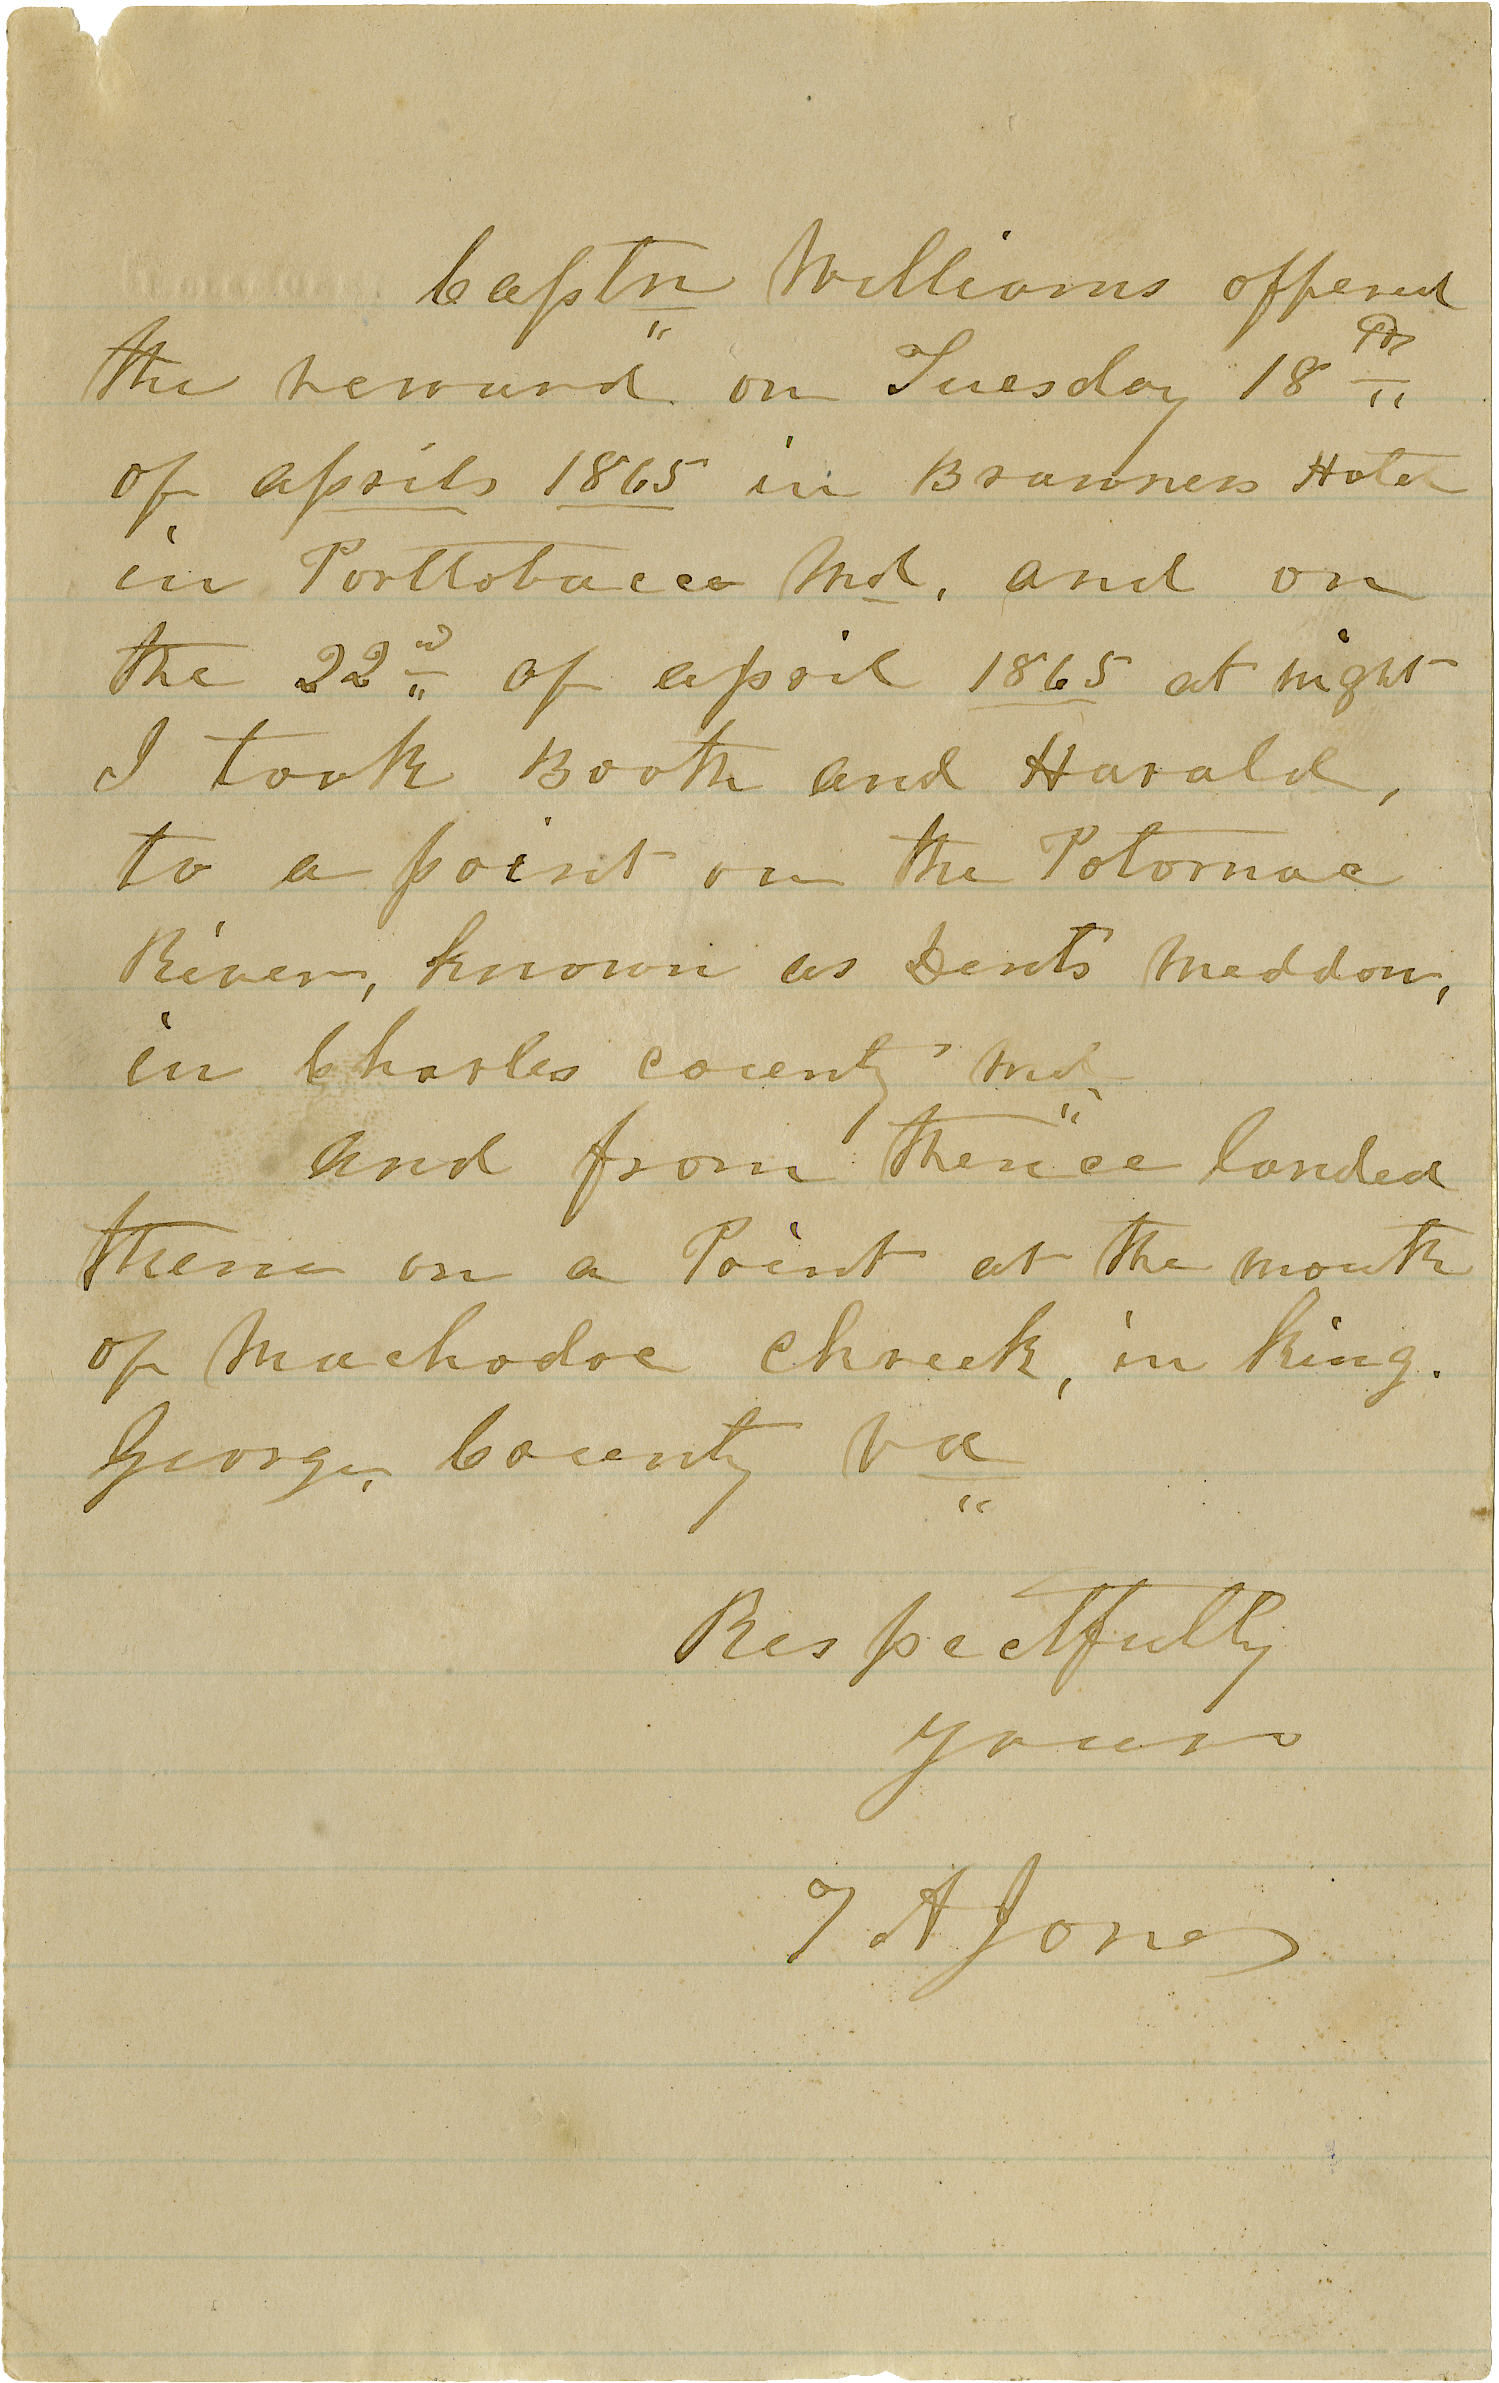 Captn Williams offered
the reward on Tuesday 18th
of april 1865 in Brawners Hotel
in Porttobacco Md. and on
the 22nd of april 1865 at night
I took Booth and Harald,
to a point on the Potomac
River, known as Dents Meddow,
in Charles County Md
and from thence landed
them on a Point at the mouth
of Machodoc Chreek, in King.
George, County Va
Respectfully
yours
T A Jones